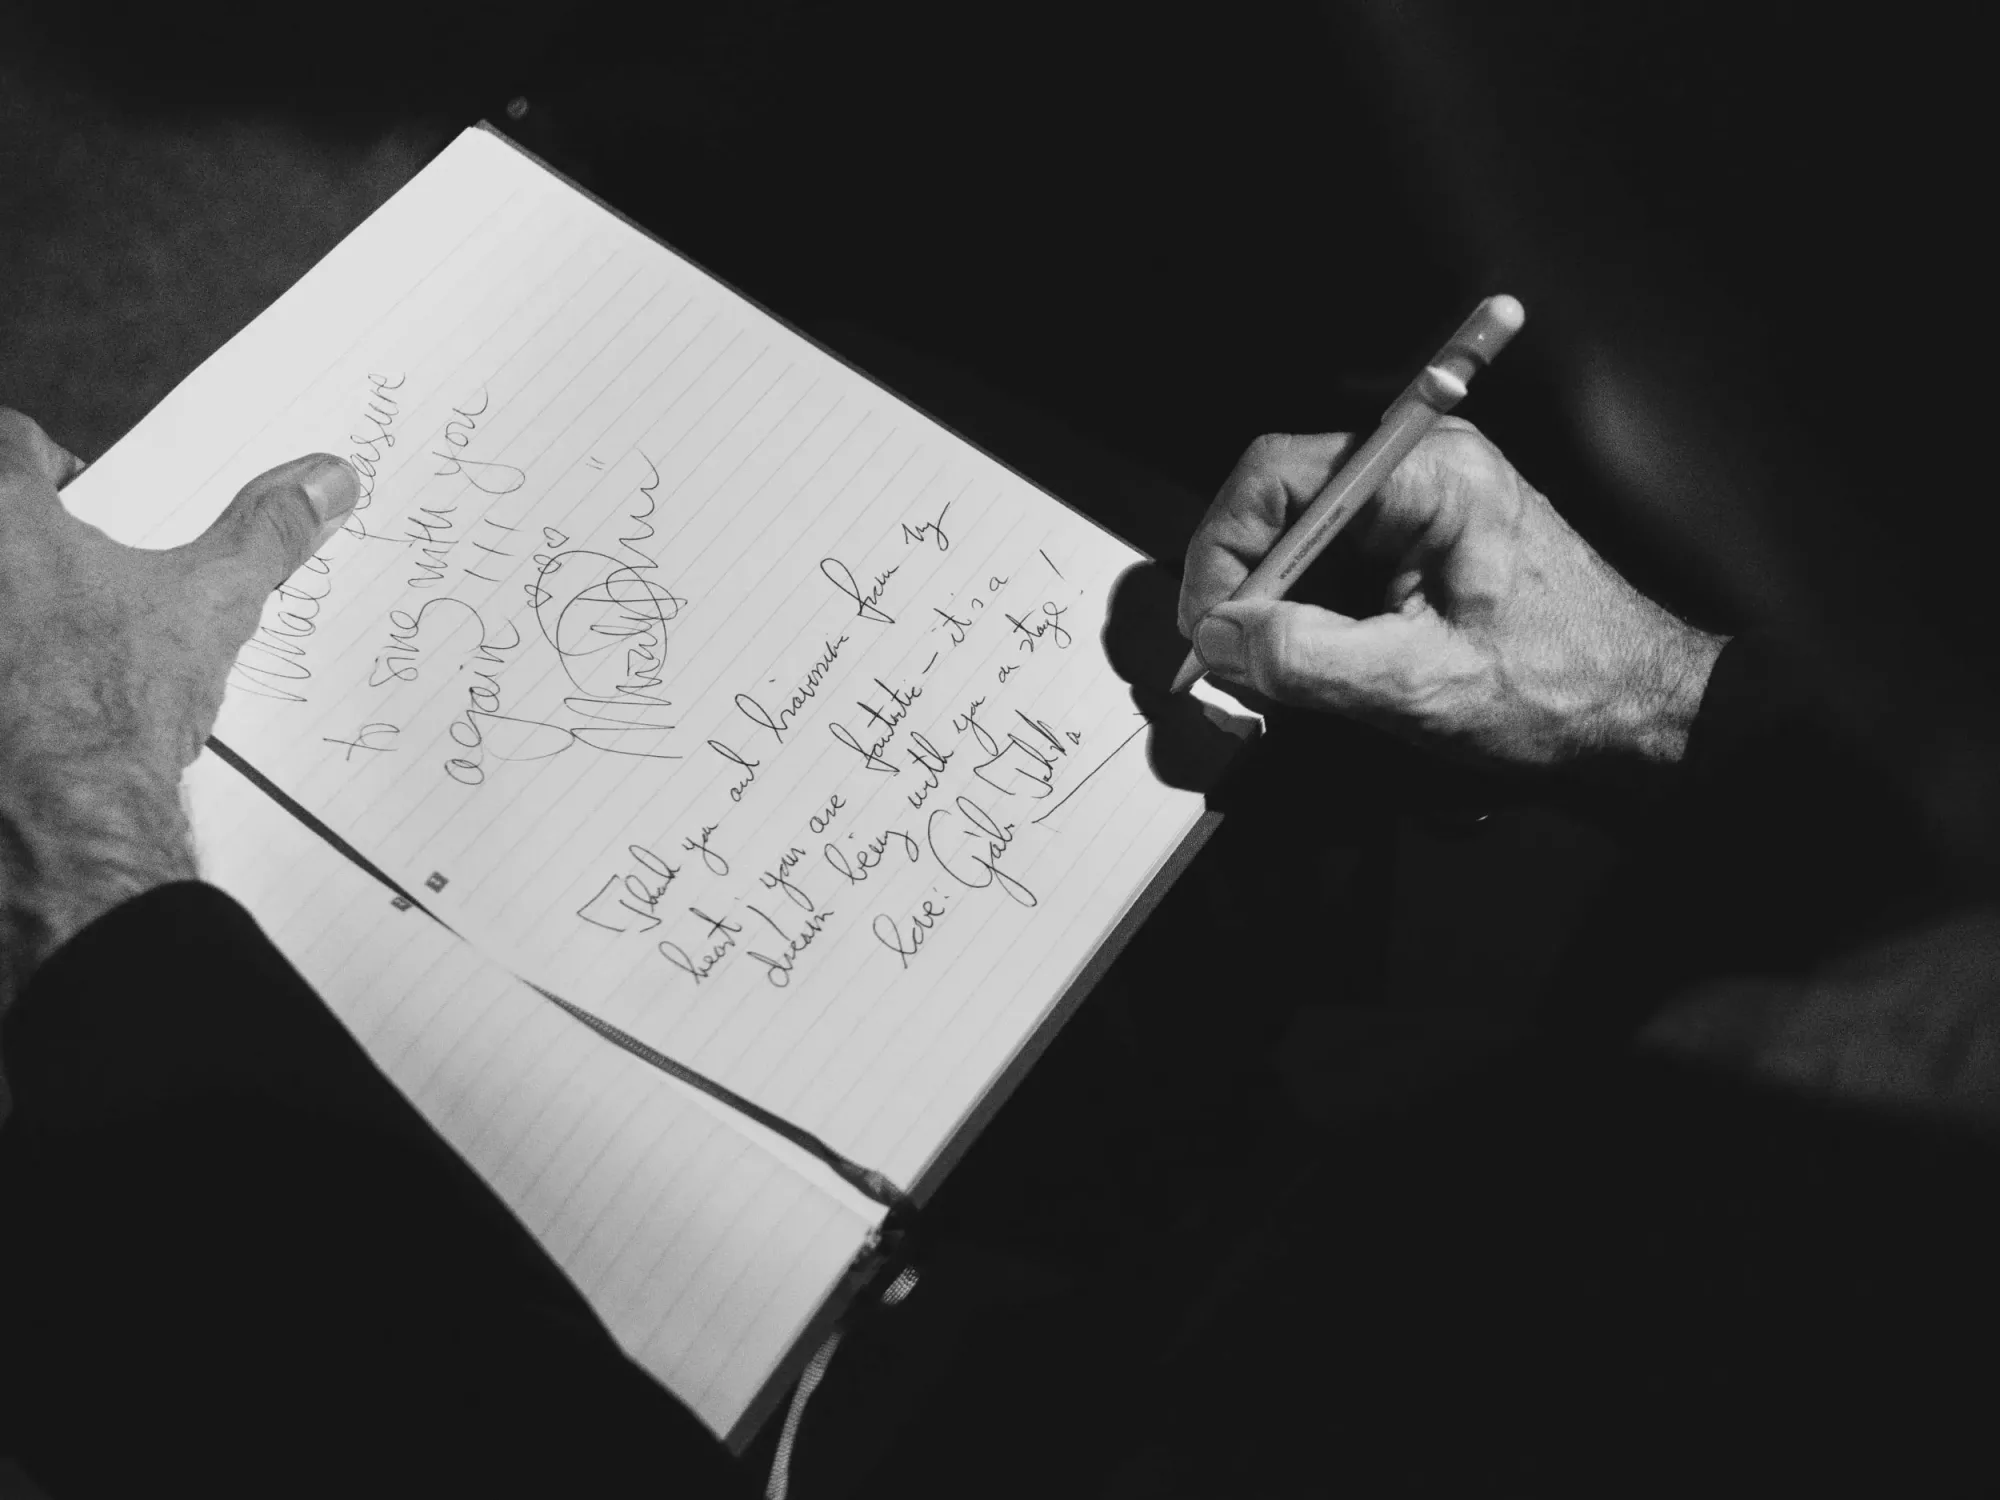 What a pleasure
to sing with you
again !!!
Thank you and from my
heart! your are fantastic – it's a
dream being with you on stage!
love: Gábi